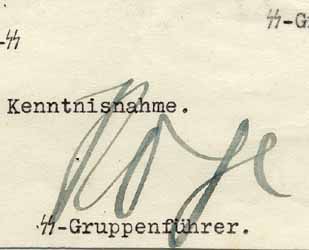 ᛋᛋ-G
-ᛋᛋ
Kenntnisnahme.
ᛋᛋ-Gruppenführer.